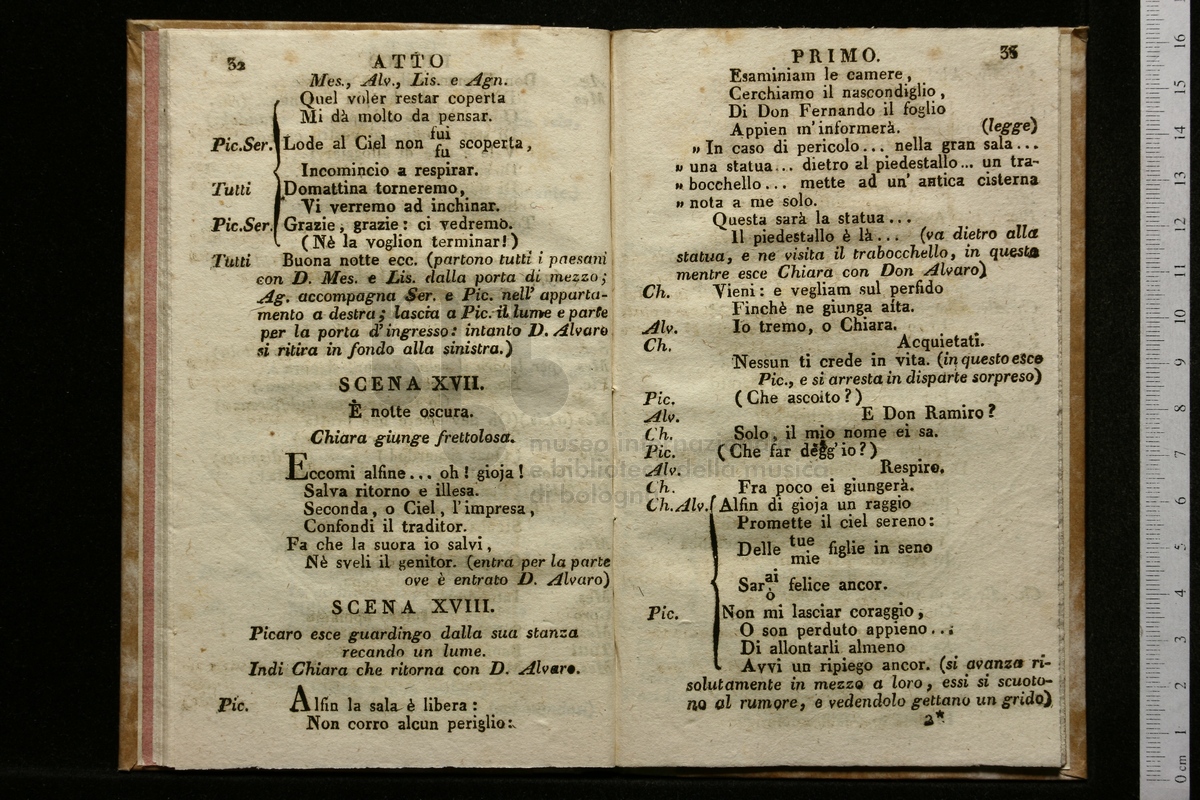 32
ATTO
Mes., Alv., Lis. e Agn.
Quel voler restar coperta
Mi dà molto da pensar.
Pic.Ser. Lode al Ciel non fui fu scoperta,
Incomincio a respirar.
Tutti Domattina torneremo,
Vi verremo ad inchinar.
Pic.Ser. Grazie, grazie: ci vedremo.
(Nè la voglion terminar!)
Tutti Buona notte ecc. (partono tutti i paesani
con D. Mes. e Lis. dalla porta di mezzo;
Ag. accompagna Ser. e Pic. nell' apparta-
mento a destra; lascia a Pic. il lume e parte
per la porta d'ingresso: intanto D. Alvaro
si ritira in fondo alla sinistra.)
SCENA XVII.
È notte oscura.
Chiara giunge frettolosa.
Eccomi alfine... oh! gioja!
Salva ritorno e illesa.
Seconda, o Ciel, l'impresa,
Confondi il traditor.
Fa che la suora io salvi,
Nè sveli il genitor. (entra per la parte
ove è entrato D. Alvaro)
SCENA XVIII.
Picaro esce guardingo dalla sua stanza
recando un lume.
Indi Chiara che ritorna con D. Alvaro.
Pic. Alfin la sala è libera:
Non corro alcun periglio:
PRIMO.
33
Esaminiam le camere,
Cerchiamo il nascondiglio,
Di Don Fernando il foglio
Appien m'informerà. (legge)
„ In caso di pericolo... nella gran sala...
„ una statua... dietro al piedestallo... un tra-
„ bocchello... mette ad un' antica cisterna
„ nota a me solo.
Questa sarà la statua...
Il piedestallo è là... (va dietro alla
statua, e ne visita il trabocchello, in questo
mentre esce Chiara con Don Alvaro)
Ch. Vieni: e vegliam sul perfido
Finchè ne giunga aita.
Alv. Io tremo, o Chiara.
Ch. Acquietati.
Nessun ti crede in vita. (in questo esce
Pic., e si arresta in disparte sorpreso)
Pic. (Che ascolto?)
Alv. E Don Ramiro?
Ch. Solo, il mio nome ei sa.
Pic. (Che far degg'io?)
Alv. Respiro.
Ch. Fra poco ei giungerà.
Ch.Alv. Alfin di gioja un raggio
Promette il ciel sereno:
Delle tue mie figlie in seno
Sarai ò felice ancor.
Pic. Non mi lasciar coraggio,
O son perduto appieno...
Di allontarli almeno
Avvi un ripiego ancor. (si avanza ri-
solutamente in mezzo a loro, essi si scuoto-
no al rumore, e vedendolo gettano un grido)
2*
museo internazionale
e biblioteca della musica
di bologna